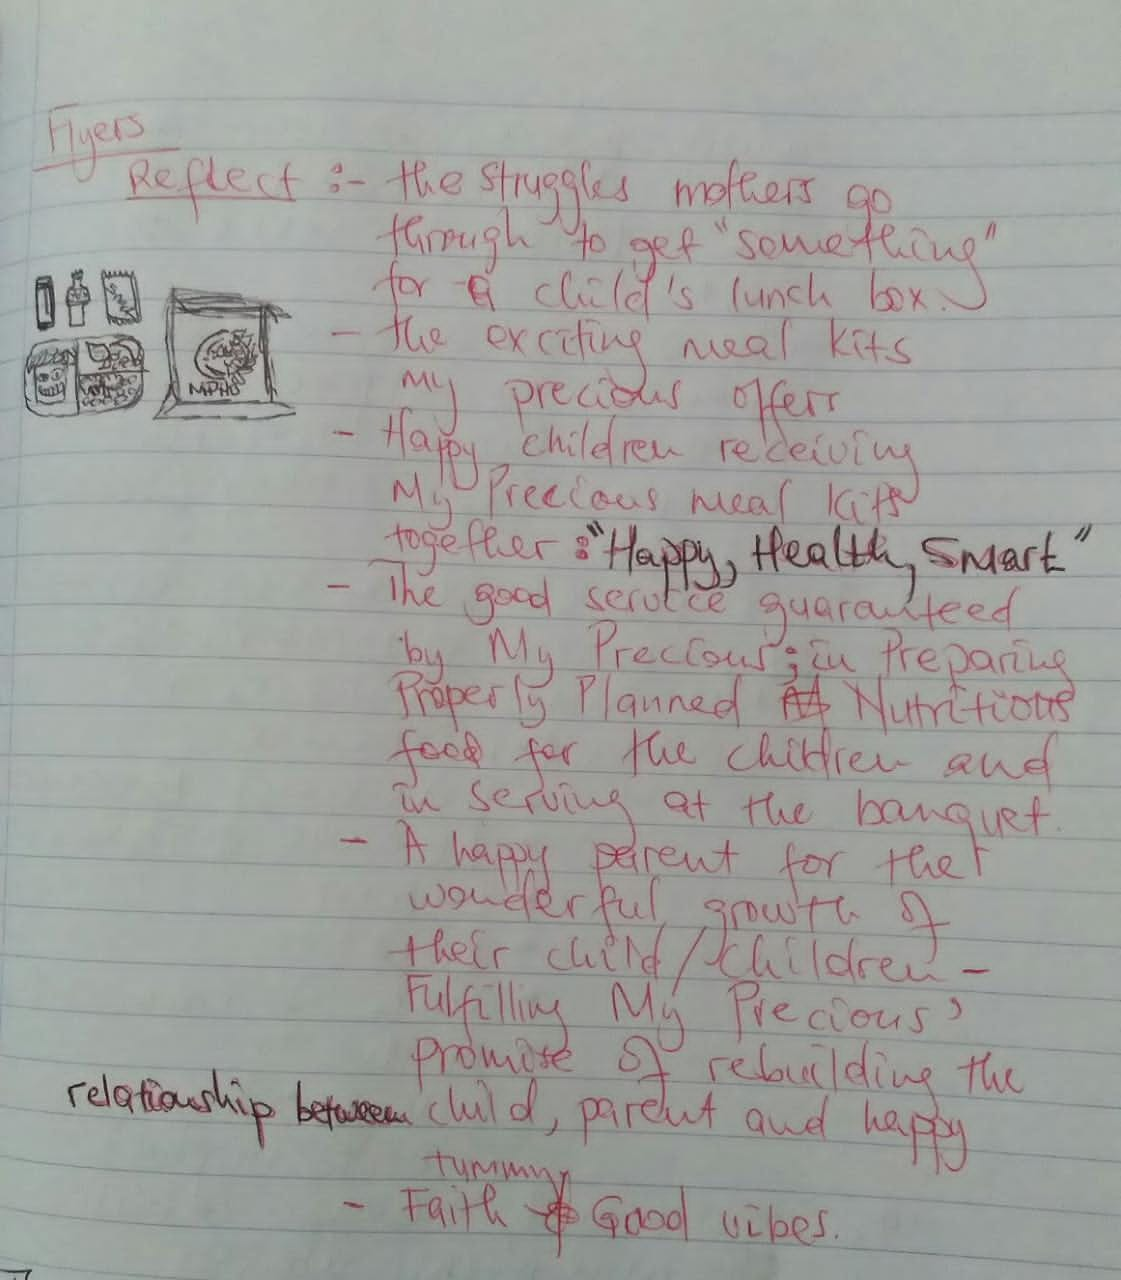 Flyers
Reflect :- the struggles mothers go
through to get "something"
for a child's lunch box.
- the exciting meal kits
my precious offers
- Happy children receiving
My Precious meal kits
together :"Happy, Health, Smart"
- The good service guaranteed
by My Precious; in Preparing
Properly Planned Nutritious
food for the children and
in serving at the banquet.
- A happy parent for the
wonderful growth of
their child/children -
Fulfilling My Precious'
promise of rebuilding the
relationship between child, parent and happy
tummy
- Faith Good vibes.
MPHS